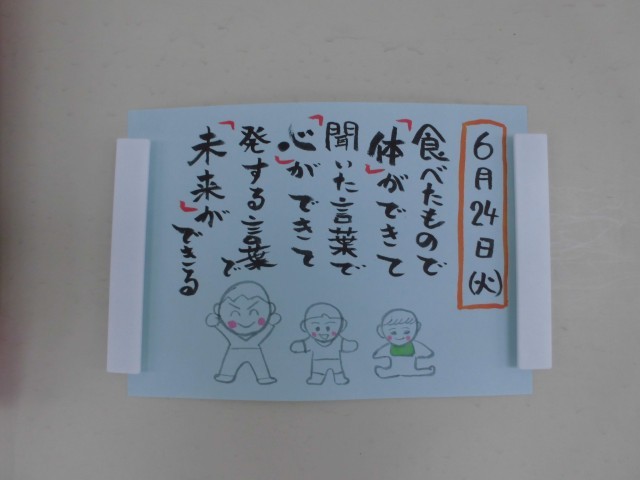 6月24日(火)
食べたもので
「体」ができて
聞いた言葉で
「心」ができて
発する言葉で
「未来」ができる